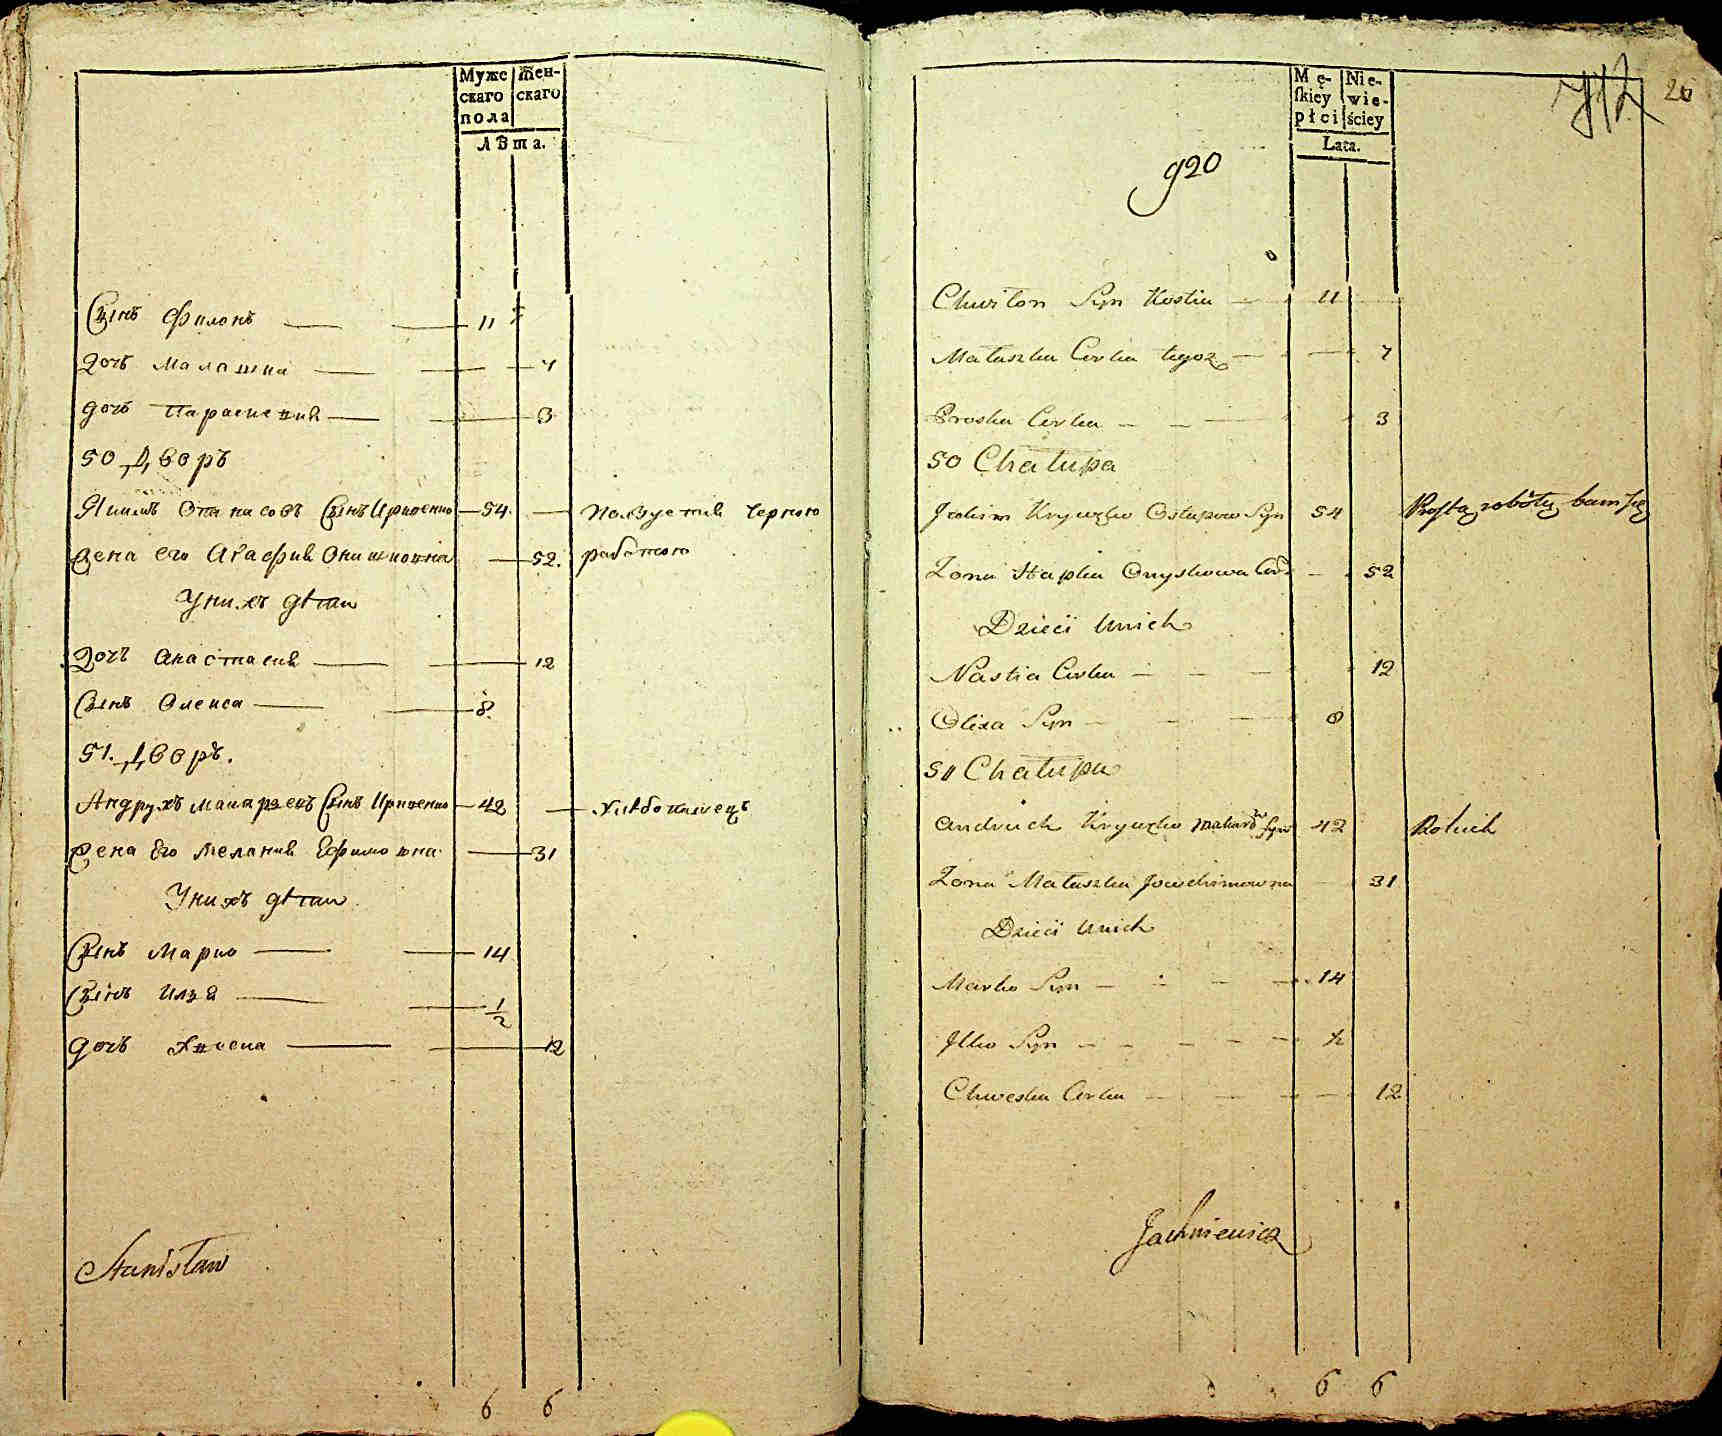 Муже Жен-
скаго скаго
пола
Лѣта.
Сынъ Филонъ 11
дочь Малашка 7
дочь Парасикия 3
50 Дворъ
Якимъ Отанасовъ Сынъ Ирженко 54 Ползуется Черною
Жена его Агафия Онишковна 52. работою
Унихъ дѣти
дочь Анастасия 12
Сынъ Олекса 8.
51. Дворъ.
Андрухъ Макаровъ Сынъ 42 Хлѣбопашецъ
Жена Его Мелания Ефимовна 31
Унихъ дѣти
Сынъ Марко 14
Сынъ Илья 1/2
дочь 12
Stanisław
6 6
Mę- Nie-
ſkiey wie-
płci ściey
Lata.
20
920
Chwiłon Syn Kostiu 11
Małaszka Corka tegoż 7
Proska Corka 3
50 Chałupa
Jakim Krywzko Ostapow Syn 54 Prostą robotą bawi się
Żona Hapka Onyskowa Cor 52
Dzieci Unich
Nastia Corka 12
Olixa Syn 8
51 Chałupa
Andruch Krywzko Makarow Syn 42 Rolnik
Żona Małaszka Jowchimowna 31
Dzieci Unich
Marko Syn 14
Jlko Syn ½
Chweska Corka 12
Jachniewicz
6 6